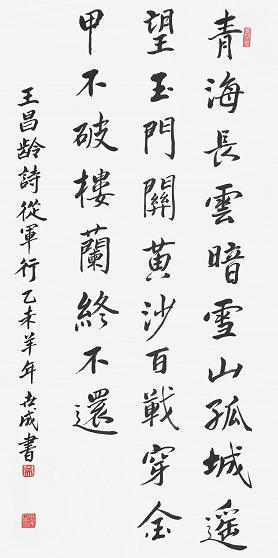 青海長雲暗雪山孤城遥
望玉門關黄沙百戰穿金
甲不破樓蘭終不還
王昌龄詩從軍行乙未羊年世成書